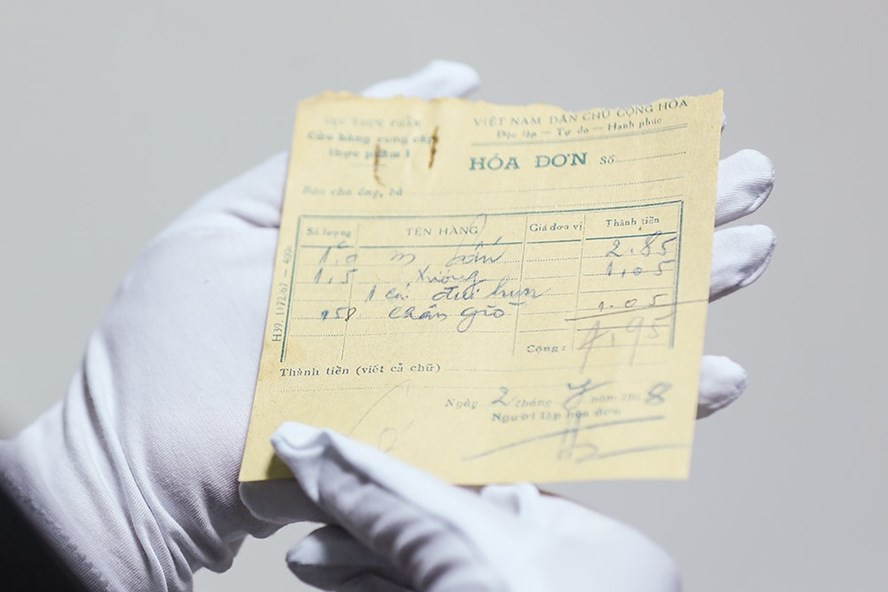 CỤC THỰC PHẨM
Cửa hàng cung cấp
thực phẩm I
VIỆT NAM DÂN CHỦ CỘNG HÒA
Độc lập — Tự do — Hạnh phúc
HÓA ĐƠN Số
Bán cho ông, bà
Số lượng TÊN HÀNG Giá đơn vị Thành tiền
1,0 2.85
1,5 xương 1,05
1 cái đuôi lợn
158 chân giò 1.05
Cộng: 4,95
Thành tiền (viết cả chữ)
Ngày 2 tháng 7 năm 196 8
Người lập hóa đơn
H39. 1172-67 — 400c